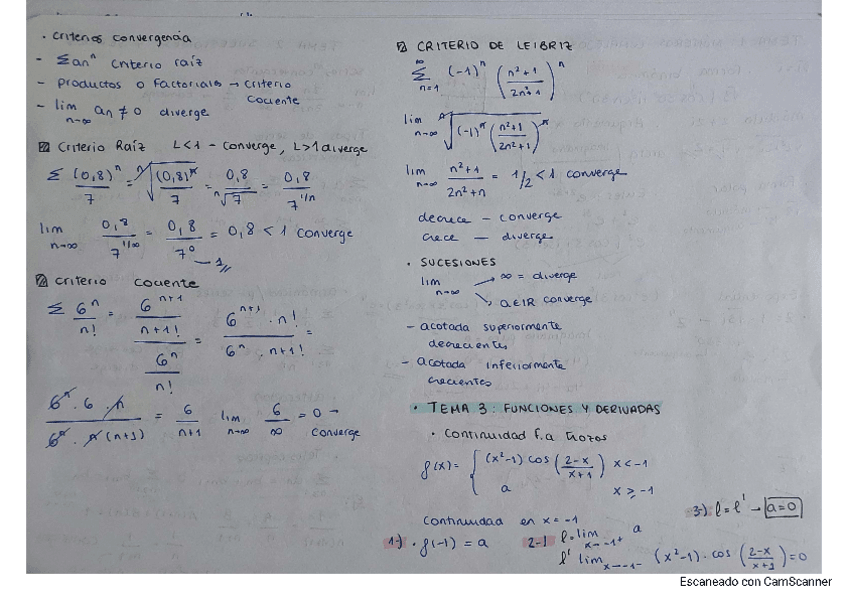 · criterios convergencia
- Σ aⁿ criterio raíz
- productos o factoriales → criterio cociente
- lim n→∞ an ≠ 0 diverge
☑ criterio Raíz L<1 - converge, L>1 diverge
Σ (0,8)ⁿ/7 = ⁿ√((0,8)ⁿ/7) = 0,8/ⁿ√7 = 0,8/7^(1/n)
lim n→∞ 0,8/7^(1/∞) = 0,8/7⁰ = 0,8 < 1 converge
→ 1//
☑ criterio cociente
Σ 6ⁿ/n! = (6ⁿ⁺¹/n+1!)/(6ⁿ/n!) = 6ⁿ⁺¹ · n!/6ⁿ · n+1! =
6ⁿ · 6 · n/6ⁿ · n(n+1) = 6/n+1 lim n→∞ 6/∞ = 0 → converge
☑ CRITERIO DE LEIBRIZ
Σ n=1 ∞ (-1)ⁿ (n²+1/2n²+1)ⁿ
lim n→∞ ⁿ√((-1)ⁿ(n²+1/2n²+1)ⁿ)
lim n→∞ n²+1/2n²+n = 1/2 < 1 converge
decrece - converge
crece - diverge
· SUCESIONES
lim n→∞ → ∞ = diverge
→ a∈IR converge
- acotada superiormente
decrecientes
- acotada inferiormente
crecientes
· TEMA 3: FUNCIONES Y DERIVADAS
· Continuidad f.a trozos
f(x) = { (x²-1) cos (2-x/x+1) x<-1
a x≥-1
Continuidad en x = -1
1-) · f(-1) = a 2-) l = lim x→-1⁺ a 3-) l = l' → a=0
l' lim x→-1⁻ (x²-1) · cos (2-x/x+1) = 0
Escaneado con CamScanner